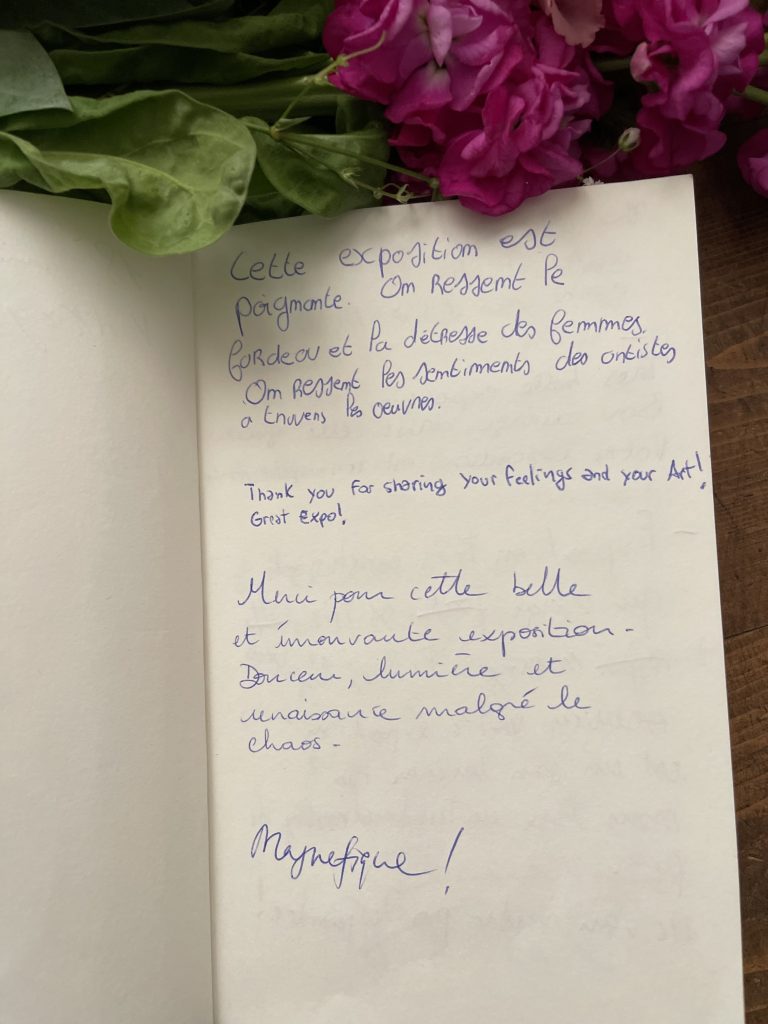 Cette exposition est
poignante. On ressent le
fardeau et la détresse des femmes.
On ressent les sentiments des artistes
a travers les oeuvres.
Thank you for sharing your feelings and your Art!
Great Expo!
Merci pour cette belle
et émouvante exposition -
Douceur, lumière et
renaissance malgré le
chaos -
Magnefique !